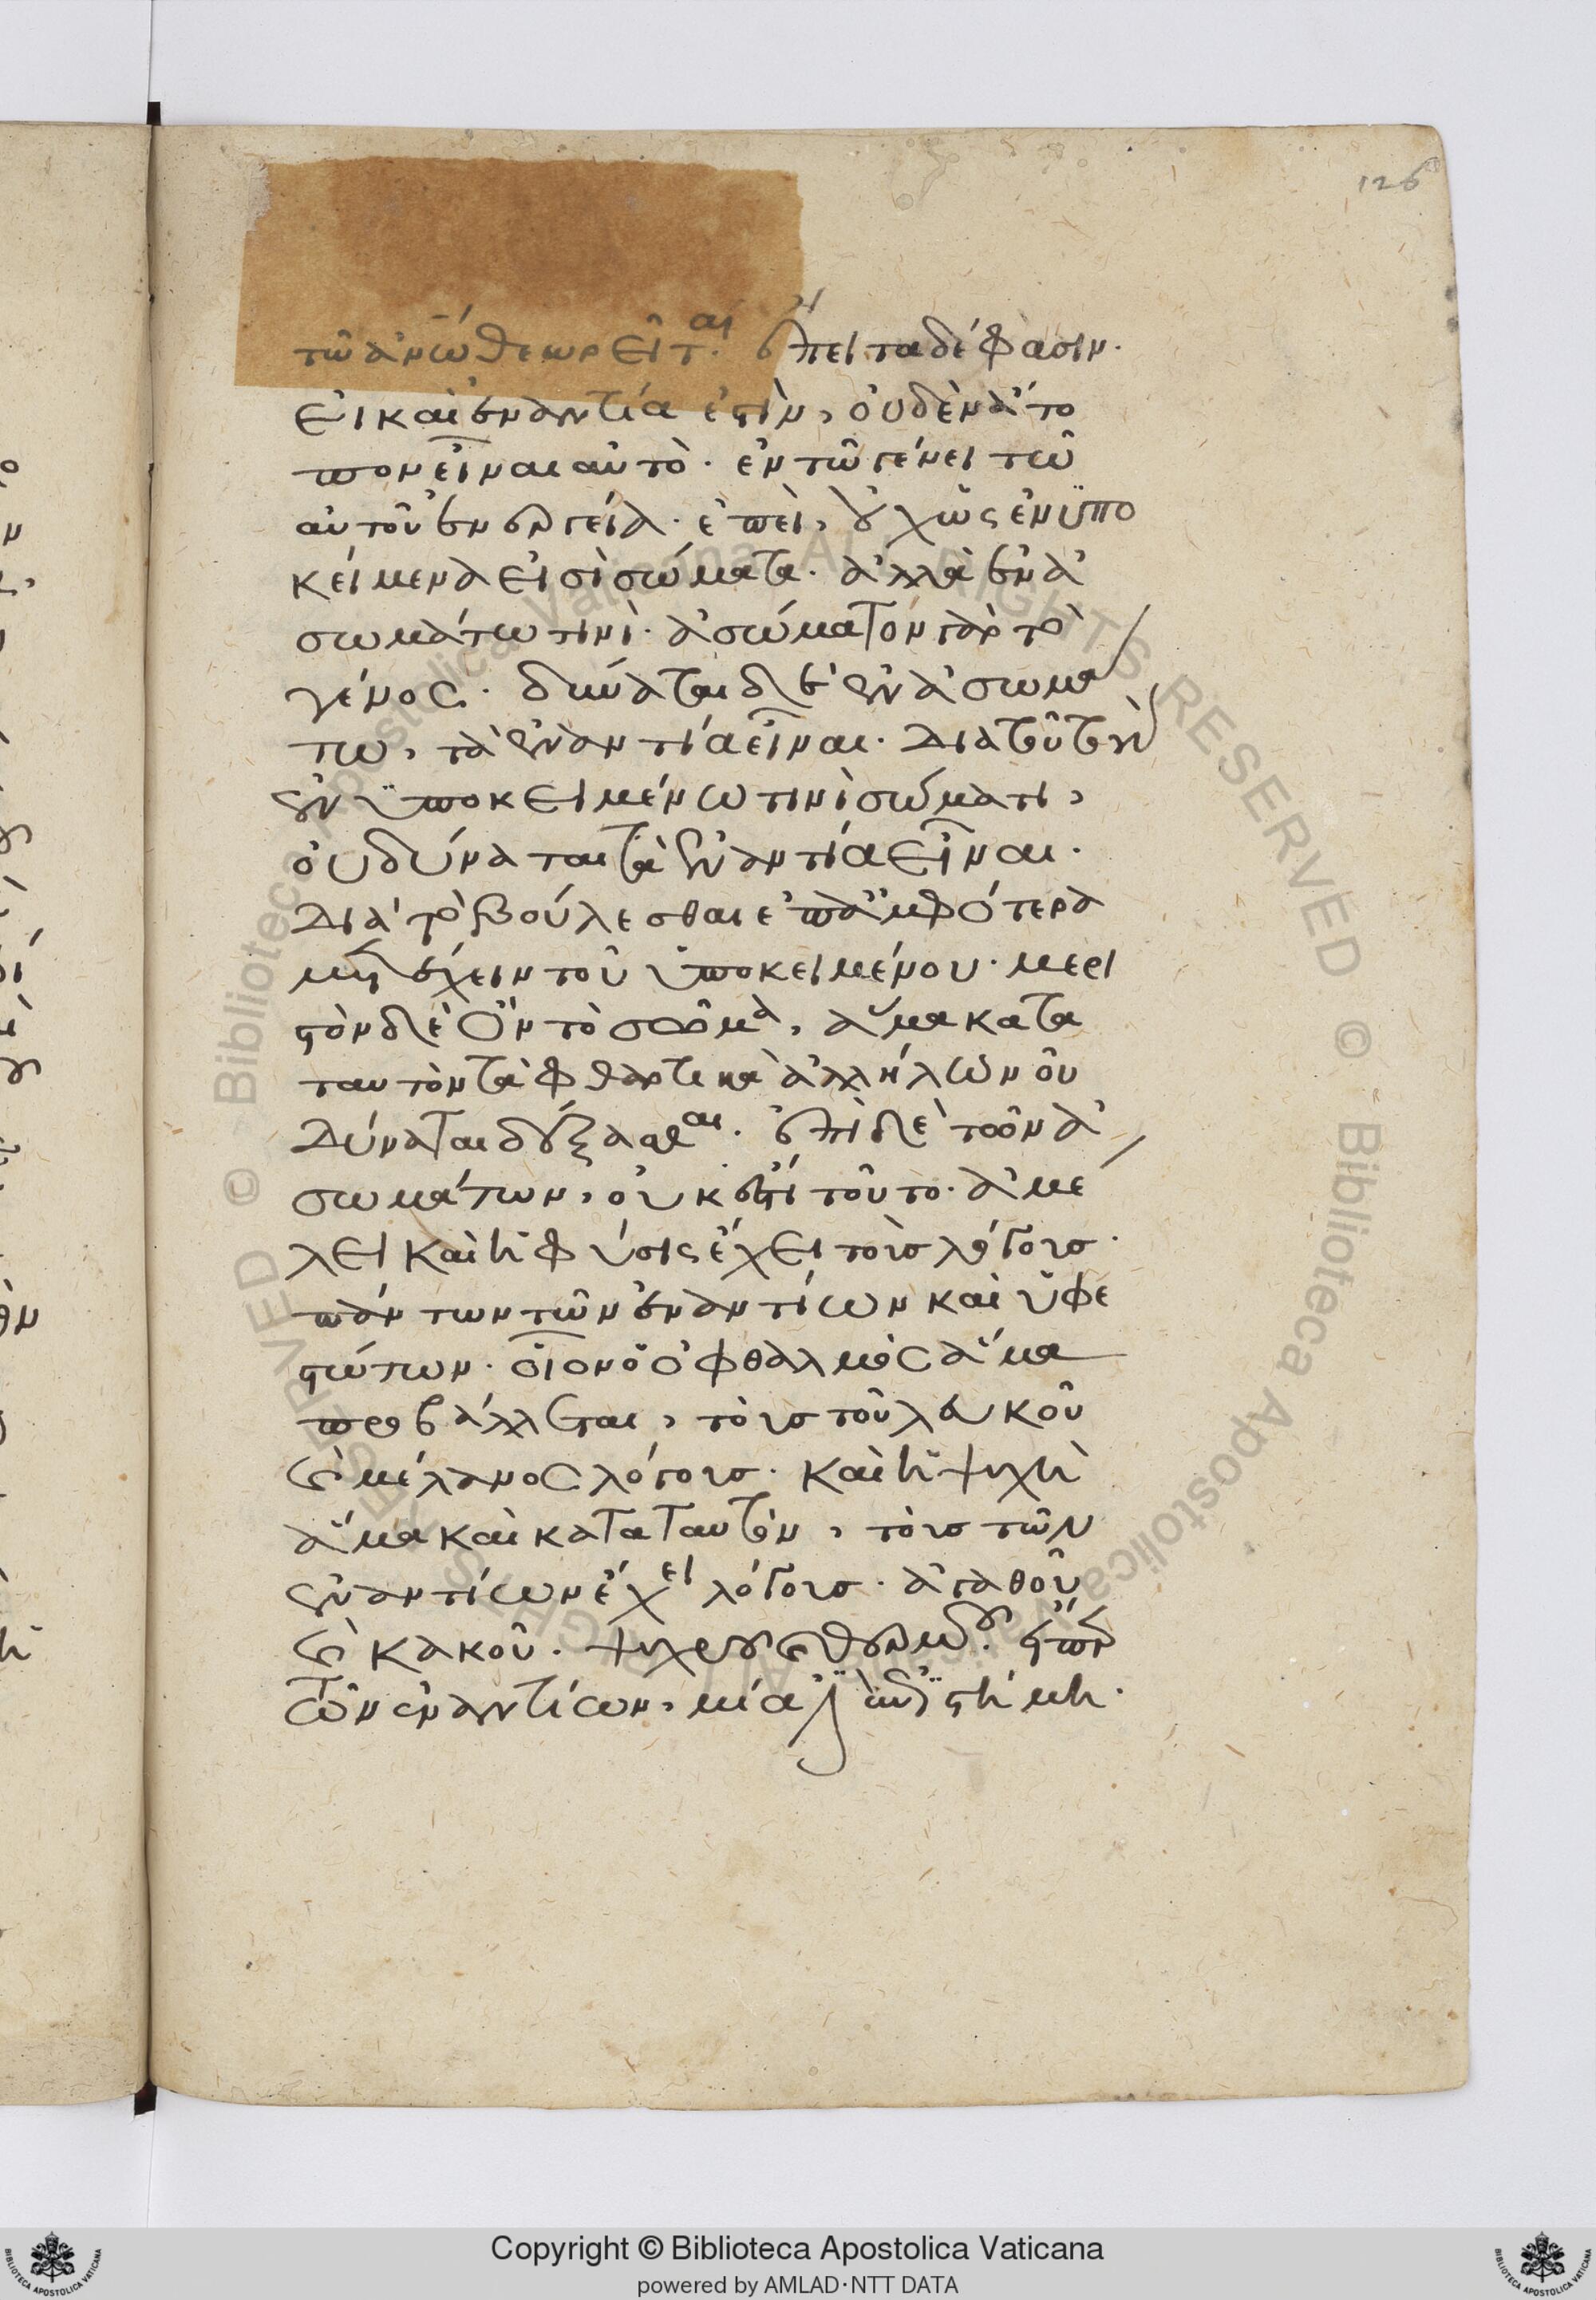 126
τῶ ἀνω θεωρεῖται. ἔπειτα δέ φασιν.
εἰ καὶ ἐναντία ἐστὶν, οὐδὲν ἄτο
πον εἶναι αὐτὸ. ἐν τῶ γένει τῶ
αὐτοῦ ἐνεργεία. ἐπεὶ, οὐχ ὡς ἐν ϋπο
κείμενα εἰσὶ σώματα. ἀλλὰ ἐν ἀ
σωμάτω τινὶ. ἀσώματον γὰρ τὸ
γένος. δύναται δὲ ἐν ἀσωμα
τω, τὰ ἐναντία εἶναι. διατοῦτο γὰρ
ἐν ϋποκειμένω τινὶ σώματι,
οὐ δύναται τὰ ἐναντία εἶναι.
διὰ τὸ βούλεσθαι ἐπ' ἀμφότερα
μὴ ἔχειν τοῦ ϋποκειμένου. μερι
στὸν δὲ ὂν τὸ σῶμα, ἅμα κατα
ταυτὸν τὰ φθαρτικὰ ἀλλήλων οὐ
δύναται δέξασθαι. ἐπὶ δὲ τῶν ἀ
σωμάτων, οὐκ ἔστι τοῦτο. ἀμέ
λει καὶ ἡ φύσις ἔχει τοὺς λόγους
πάντων τῶν ἐναντίων καὶ ὑφε
στώτων. οἷον ὁ ὀφθαλμὸς ἅμα
προβάλλεται, τοὺς τοῦ λευκοῦ
καὶ μέλανος λόγους. καὶ ἡ ψυχὴ
ἅμα καὶ κατα ταυτὸν, τοὺς τῶν
ἐναντίων ἔχει λόγους. ἀγαθοῦ
καὶ κακοῦ. ψυχροῦ καὶ θερμοῦ.
τῶν ἐναντίων, μία ἐπιστήμη.
Copyright © Biblioteca Apostolica Vaticana
powered by AMLAD·NTT DATA
© Biblioteca Apostolica Vaticana ALL RIGHTS RESERVED
© Biblioteca Apostolica Vaticana ALL RIGHTS RESERVED